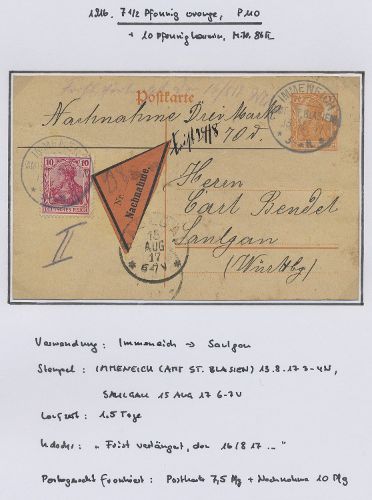 1916 7 1/2 Pfennig orange, P 110
+ 10 Pfennig karmin, Mi.Nr. 86 II
Postkarte
Nachnahme Drei Mark
70 d.
IMMENEICH
10 10
Nr.
Nachnahme.
Frist 19/8
Herrn
Carl Bendel
Saulgau
(Württbg)
II
15
AUG
17
6-7V
Verwendung: Immeneich → Saulgau
Stempel: IMMENEICH (AMT ST. BLASIEN) 13.8.17 3-4N,
SAULGAU 15 AUG 17 6-7V
Laufzeit: 1.5 Tage
"Frist verlängert, den 16/8 17 ..."
Portogerecht frankiert: Postkarte 7,5 Pfg + Nachnahme 10 Pfg